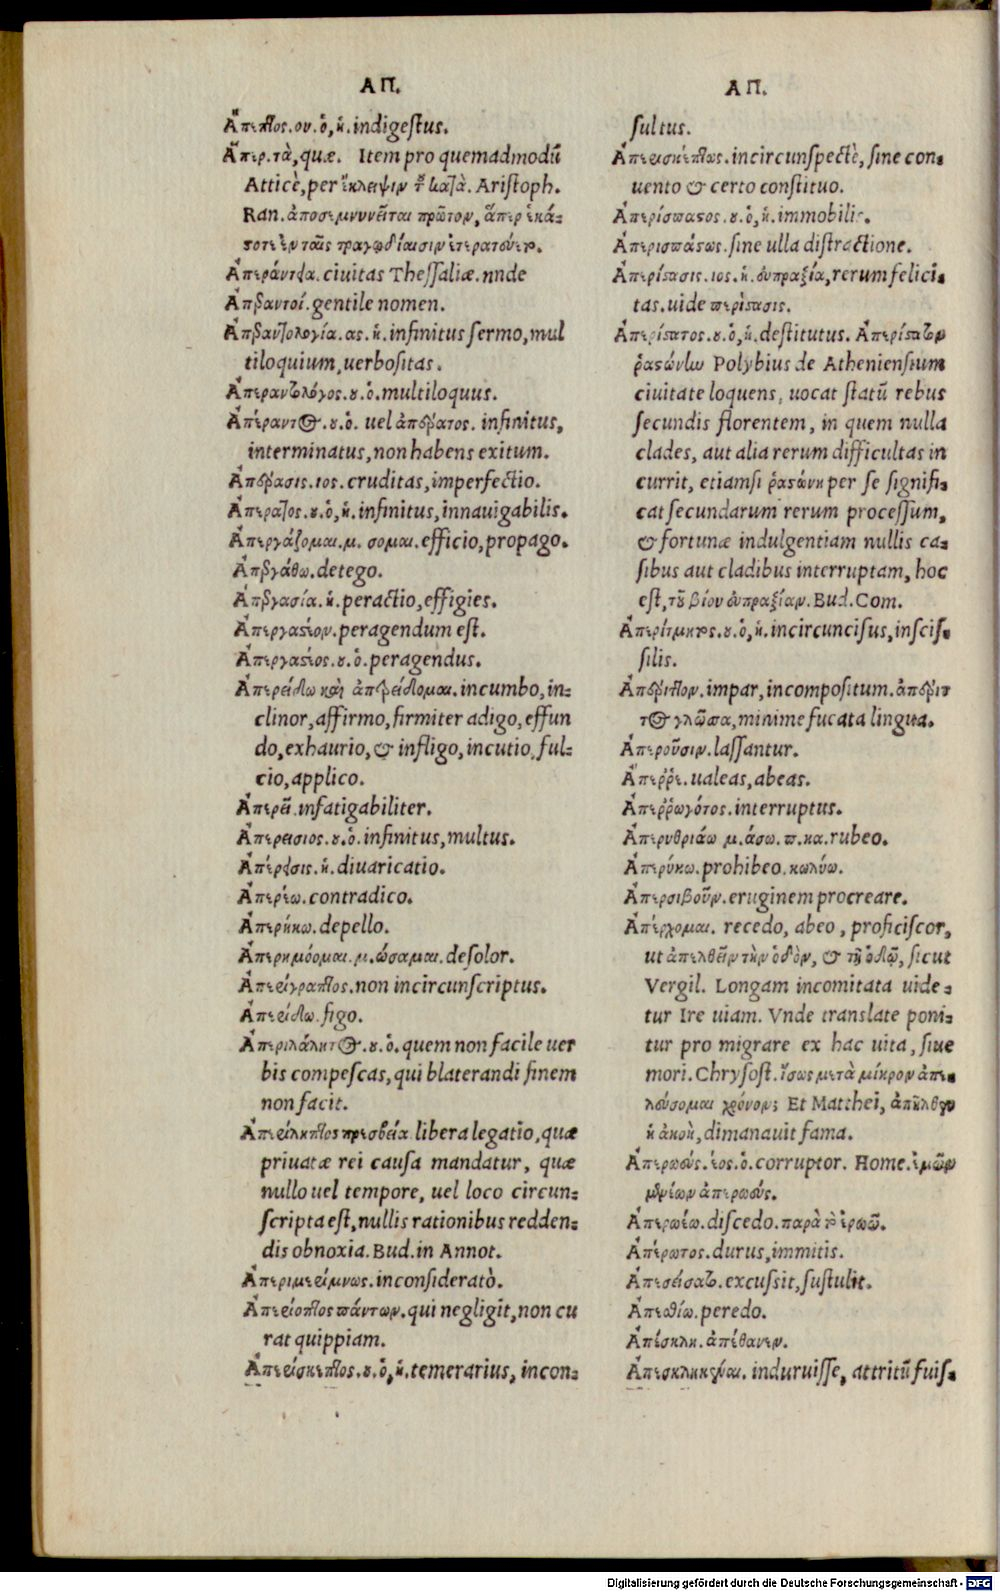 ΑΠ.
Ἄπεπτος.ου.ὁ,ἡ.indigeſtus.
Ἅπερ.τὰ,quæ. Item pro quemadmodũ
Atticè,per ἔκλειψιν τ κατὰ. Ariſtoph.
Ran.ἀποσεμνυνεῖται πρῶτον, ἅπερ ἑκά-
στοτε ἐν ταῖς τραγῳδίαισιν ἐτερατεύετο.
Ἀπεράντεια.ciuitas Theſſaliæ.unde
Ἀπεραντοί.gentile nomen.
Ἀπεραντολογία.ας.ἡ.infinitus ſermo,mul
tiloquium,uerboſitas.
Ἀπεραντολόγος.ου.ὁ.multiloquus.
Ἀπέραντος.ου.ὁ. uel ἀπέρατος. infinitus,
interminatus,non habens exitum.
Ἀπέρασις.ιος.cruditas,imperfectio.
Ἀπέρατος.ου.ὁ,ἡ.infinitus,innauigabilis.
Ἀπεργάζομαι.μ. σομαι.efficio,propago.
Ἀπεργάθω.detego.
Ἀπεργασία.ἡ.peractio,effigies.
Ἀπεργαστέον.peragendum eſt.
Ἀπεργαστέος.ου.ὁ.peragendus.
Ἀπερείδω καὶ ἀπερείδομαι.incumbo,in-
clinor,affirmo,firmiter adigo,effun
do,exhaurio,& infligo,incutio,ful-
cio,applico.
Ἀπερεῖ.infatigabiliter.
Ἀπερεισιος.ου.ὁ.infinitus,multus.
Ἀπέρεισις.ἡ.diuaricatio.
Ἀπερέω.contradico.
Ἀπερήκω.depello.
Ἀπερημόομαι.μ.ώσαμαι.deſolor.
Ἀπερίγραπτος.non incircunſcriptus.
Ἀπερίδω.figo.
Ἀπεριλάλητος.ου.ὁ.quem non facile uer
bis compeſcas,qui blaterandi finem
non facit.
Ἀπερίληπτος πρεσβεία libera legatio,quæ
priuatæ rei cauſa mandatur, quæ
nullo uel tempore, uel loco circun-
ſcripta eſt,nullis rationibus redden-
dis obnoxia.Bud.in Annot.
Ἀπεριμερίμνως.inconſideratò.
Ἀπερίοπτος πάντων.qui negligit,non cu
rat quippiam.
Ἀπερίσκεπτος.ου.ὁ,ἡ.temerarius, incon-
ΑΠ.
ſultus.
Ἀπερισκέπτως.incircunſpectè, ſine con-
uento & certo conſtituo.
Ἀπερίσπαστος.ου.ὁ,ἡ.immobilis.
Ἀπερισπάστως.ſine ulla diſtractione.
Ἀπερίστασις.ιος.ἡ.εὐπραξία,rerum felici-
tas.uide περίστασις.
Ἀπερίστατος.ου.ὁ,ἡ.deſtitutus. Ἀπερίστατον
ῥαστώνην Polybius de Athenienſium
ciuitate loquens, uocat ſtatũ rebus
ſecundis florentem, in quem nulla
clades, aut alia rerum difficultas in
currit, etiamſi ῥαστώνη per ſe ſignifi-
cat ſecundarum rerum proceſſum,
& fortunæ indulgentiam nullis ca-
ſibus aut cladibus interruptam, hoc
eſt,τοῦ βίου εὐπραξίαν.Bud.Com.
Ἀπερίτμητος.ου.ὁ,ἡ.incircunciſus,inſciſ-
ſilis.
Ἀπέριττον.impar,incompoſitum.ἀπέριτ
τος γλῶσσα,minime fucata lingua.
Ἀπεροῦσιν.laſſantur.
Ἄπερρε.ualeas,abeas.
Ἀπερρωγότος.interruptus.
Ἀπερυθριάω μ.άσω.π.κα.rubeo.
Ἀπερύκω.prohibeo.κωλύω.
Ἀπερσιβοῦν.eruginem procreare.
Ἀπέρχομαι. recedo, abeo, proficiſcor,
ut ἀπελθεῖν τὴν ὁδὸν, & τῇ ὁδῷ, ſicut
Vergil. Longam incomitata uide-
tur Ire uiam. Vnde translate poni-
tur pro migrare ex hac uita, ſiue
mori.Chryſoſt.ἴσως μετὰ μίκρον ἀπε-
λεύσομαι χρόνον; Et Matthei, ἀπῆλθεν
ἡ ἀκοὴ,dimanauit fama.
Ἀπερωεύς.έος.ὁ.corruptor. Home.ἐμῶν
μενέων ἀπερωεύς.
Ἀπερωέω.diſcedo.παρὰ τὸ ἐρωῶ.
Ἀπέρωτος.durus,immitis.
Ἀπεσείσατο.excuſſit,ſuſtulit.
Ἀπεσθίω.peredo.
Ἀπέσκλη.ἀπέθανεν.
Ἀπεσκληκέναι. induruiſſe, attritũ fuiſ-
Digitalisierung gefördert durch die Deutsche Forschungsgemeinschaft - DFG